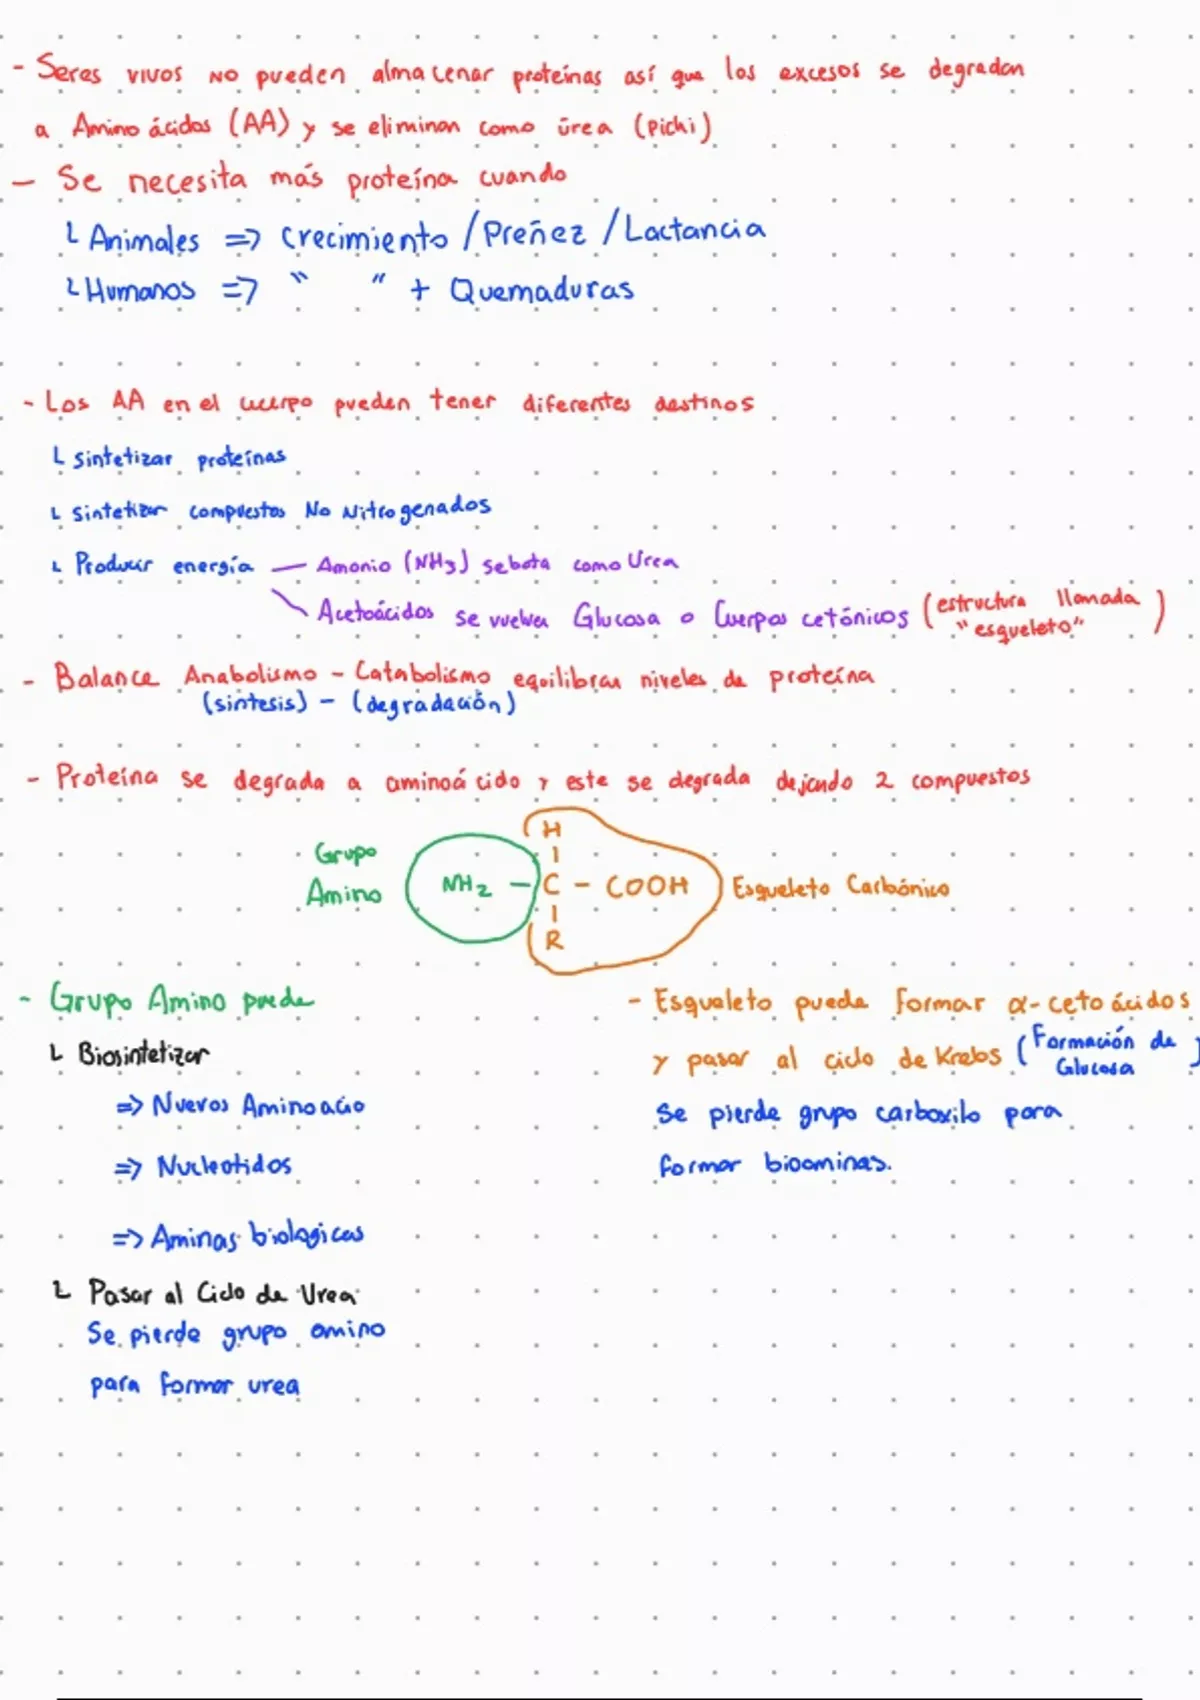 - Seres vivos NO pueden almacenar proteínas así que los excesos se degradan
a Amino ácidos (AA) y se eliminan como úrea (pichi)
- Se necesita más proteína cuando
└ Animales => Crecimiento / Preñez / Lactancia
└ Humanos => " " + Quemaduras
- Los AA en el cuerpo pueden tener diferentes destinos
└ sintetizar proteínas
└ sintetizar compuestos No Nitrogenados
└ Producir energía — Amonio (NH3) se bota como Urea
Acetoácidos se vuelven Glucosa o Cuerpos cetónicos (estructura llamada
"esqueleto")
- Balance Anabolismo - Catabolismo equilibran niveles de proteína
(síntesis) - (degradación)
- Proteína se degrada a aminoácido y este se degrada dejando 2 compuestos
H
Grupo
Amino NH2 - C - COOH Esqueleto Carbónico
R
- Grupo Amino puede
└ Biosintetizar
=> Nuevos Aminoacio
=> Nucleotidos
=> Aminas biologicas
└ Pasar al Ciclo de Urea
Se pierde grupo amino
para formar urea
- Esqueleto puede formar α-cetoácidos
y pasar al ciclo de Krebs (Formación de
Glucosa)
Se pierde grupo carboxilo para
formar bioaminas.